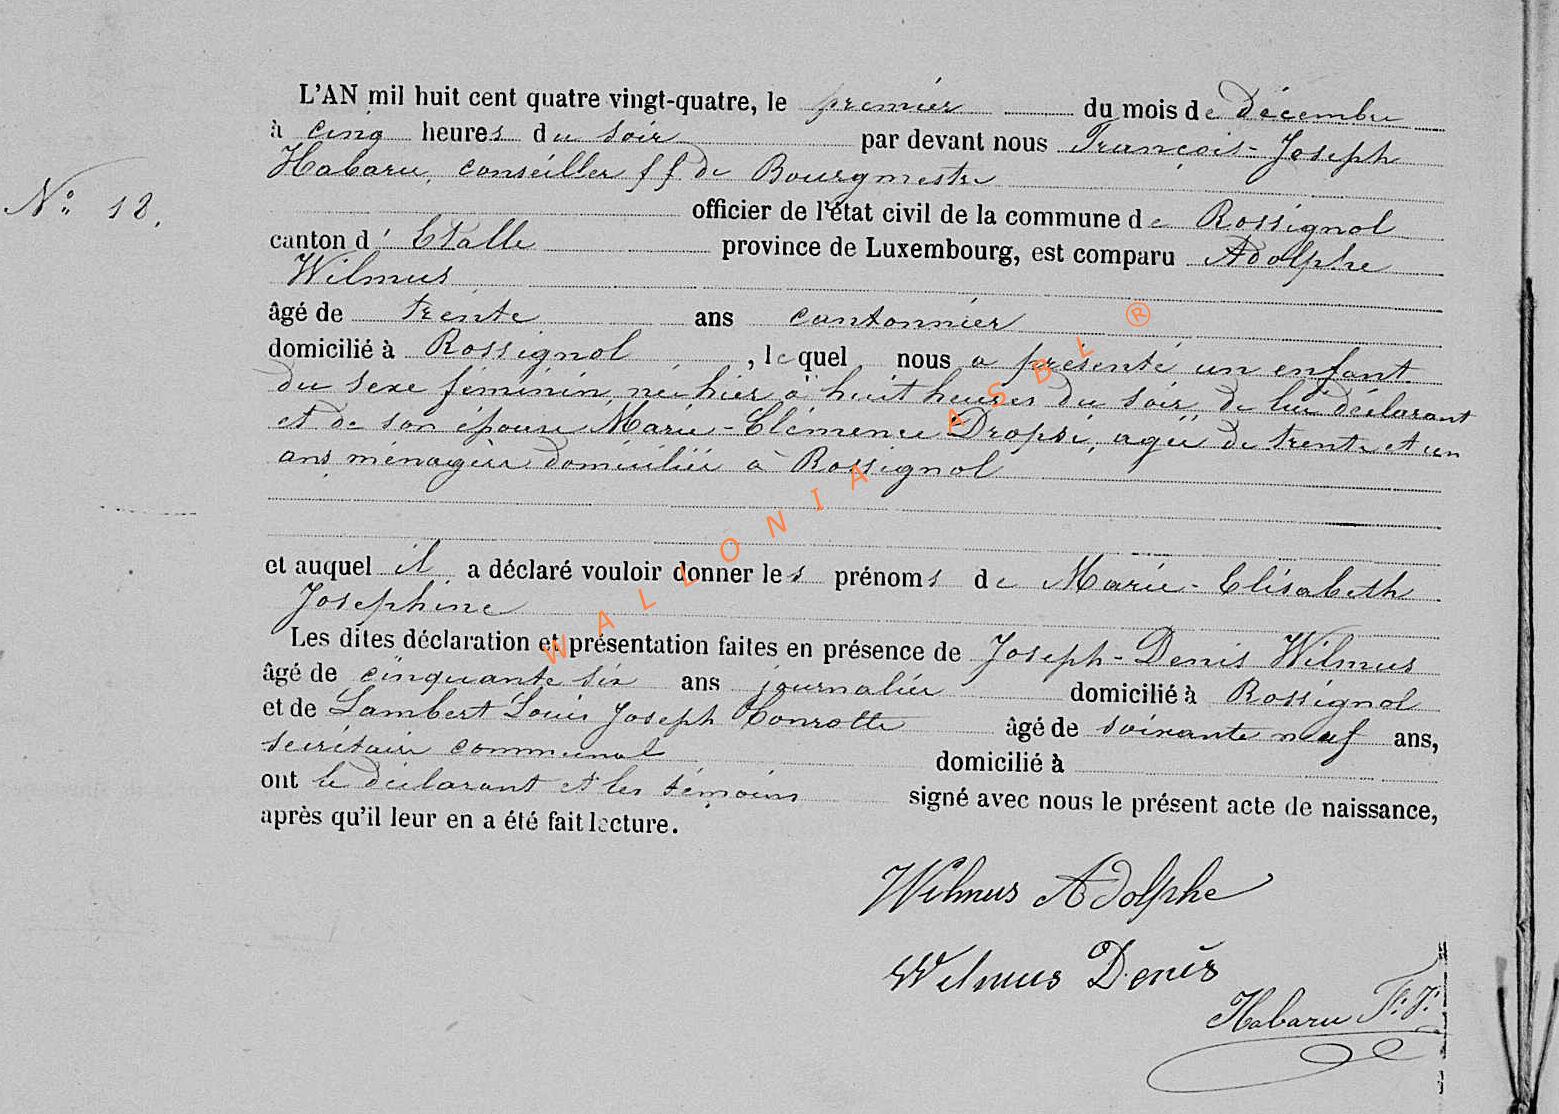 L'AN mil huit cent quatre vingt-quatre, le premier du mois de décembre
à cinq heures du soir par devant nous François-Joseph
Habaru, conseiller ff de Bourgmestre
officier de l'état civil de la commune de Rossignol
N° 12.
canton d'Etalle province de Luxembourg, est comparu Adolphe
Wilmus
âgé de trente ans cantonnier
domicilié à Rossignol, lequel nous a présenté un enfant
du sexe féminin, né hier à huit heures du soir, de lui déclarant
et de son épouse Marie-Clémence Dropsi, agée de trente et un
ans, ménagère domiciliée à Rossignol
et auquel il a déclaré vouloir donner les prénoms de Marie-Elisabeth
Joséphine
Les dites déclaration et présentation faites en présence de Joseph-Denis Wilmus
âgé de cinquante six ans journalier domicilié à Rossignol
et de Lambert Louis Joseph Conrotte âgé de soixante neuf ans,
secrétaire communal domicilié à
ont le déclarant et les témoins signé avec nous le présent acte de naissance,
après qu'il leur en a été fait lecture.
Wilmus Adolphe
Wilmus Denis
Habaru F. J.
WALLONIA ASBL ®